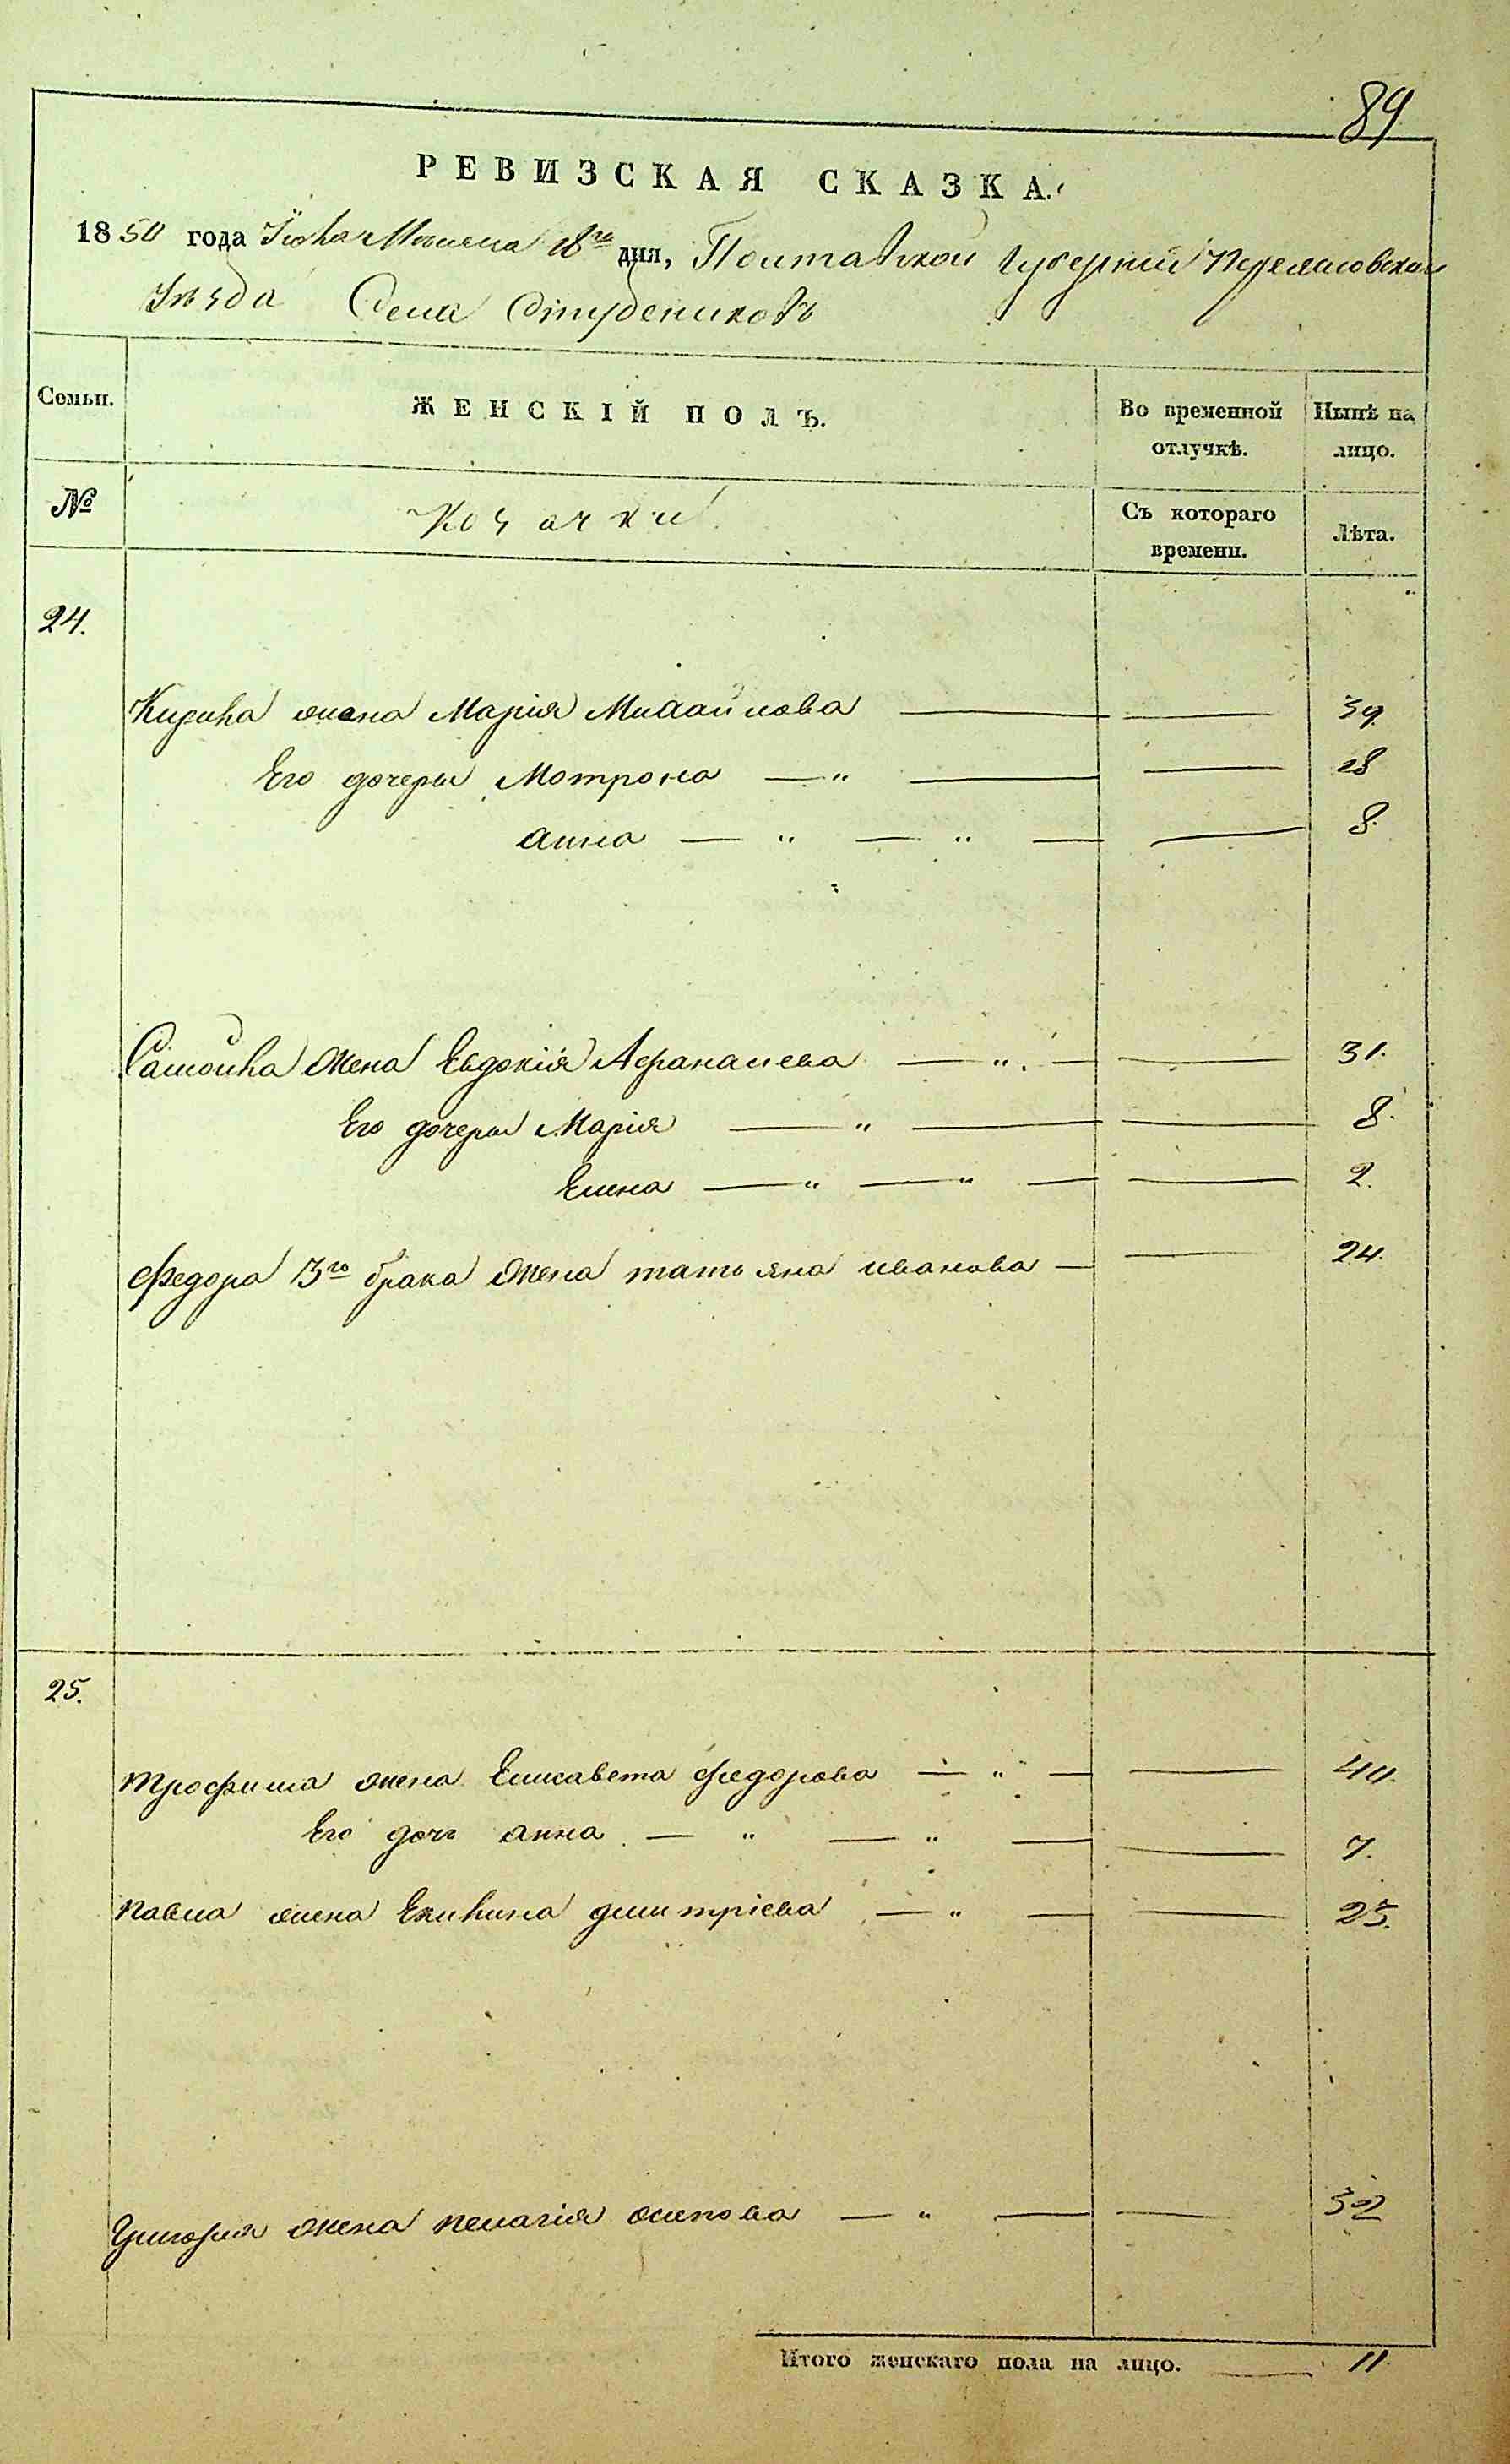 89
РЕВИЗСКАЯ СКАЗКА.
1850 года Іюля Месяца 18го дня, Полтавской Губерніи Переяславскаго
Уѣзда Села Студениковъ
Семьи. ЖЕНСКІЙ ПОЛЪ. Во временной отлучкѣ. Нынѣ на лицо.
№ Козачки Съ котораго времени. Лѣта.
24.
Кирила жена Марія Михайлова — — 39
Его дочеры Мотрона — " — — 18
Анна — " — " — — 8.
Самойла жена Евдокія Афанасиева — " — — 31.
Его дочеры Марія — " — — 8.
Елена — " — " — — 2.
Федора 3го брака жена татьяна иванова — — 24.
25.
трофима жена Елисавета федорова — " — — 40.
Его дочь анна — " — " — — 7.
павла жена Акилина дмитріева — " — — 25.
Григорія жена пелагія осипова — " — — 32
Итого женскаго пола на лицо. — 11